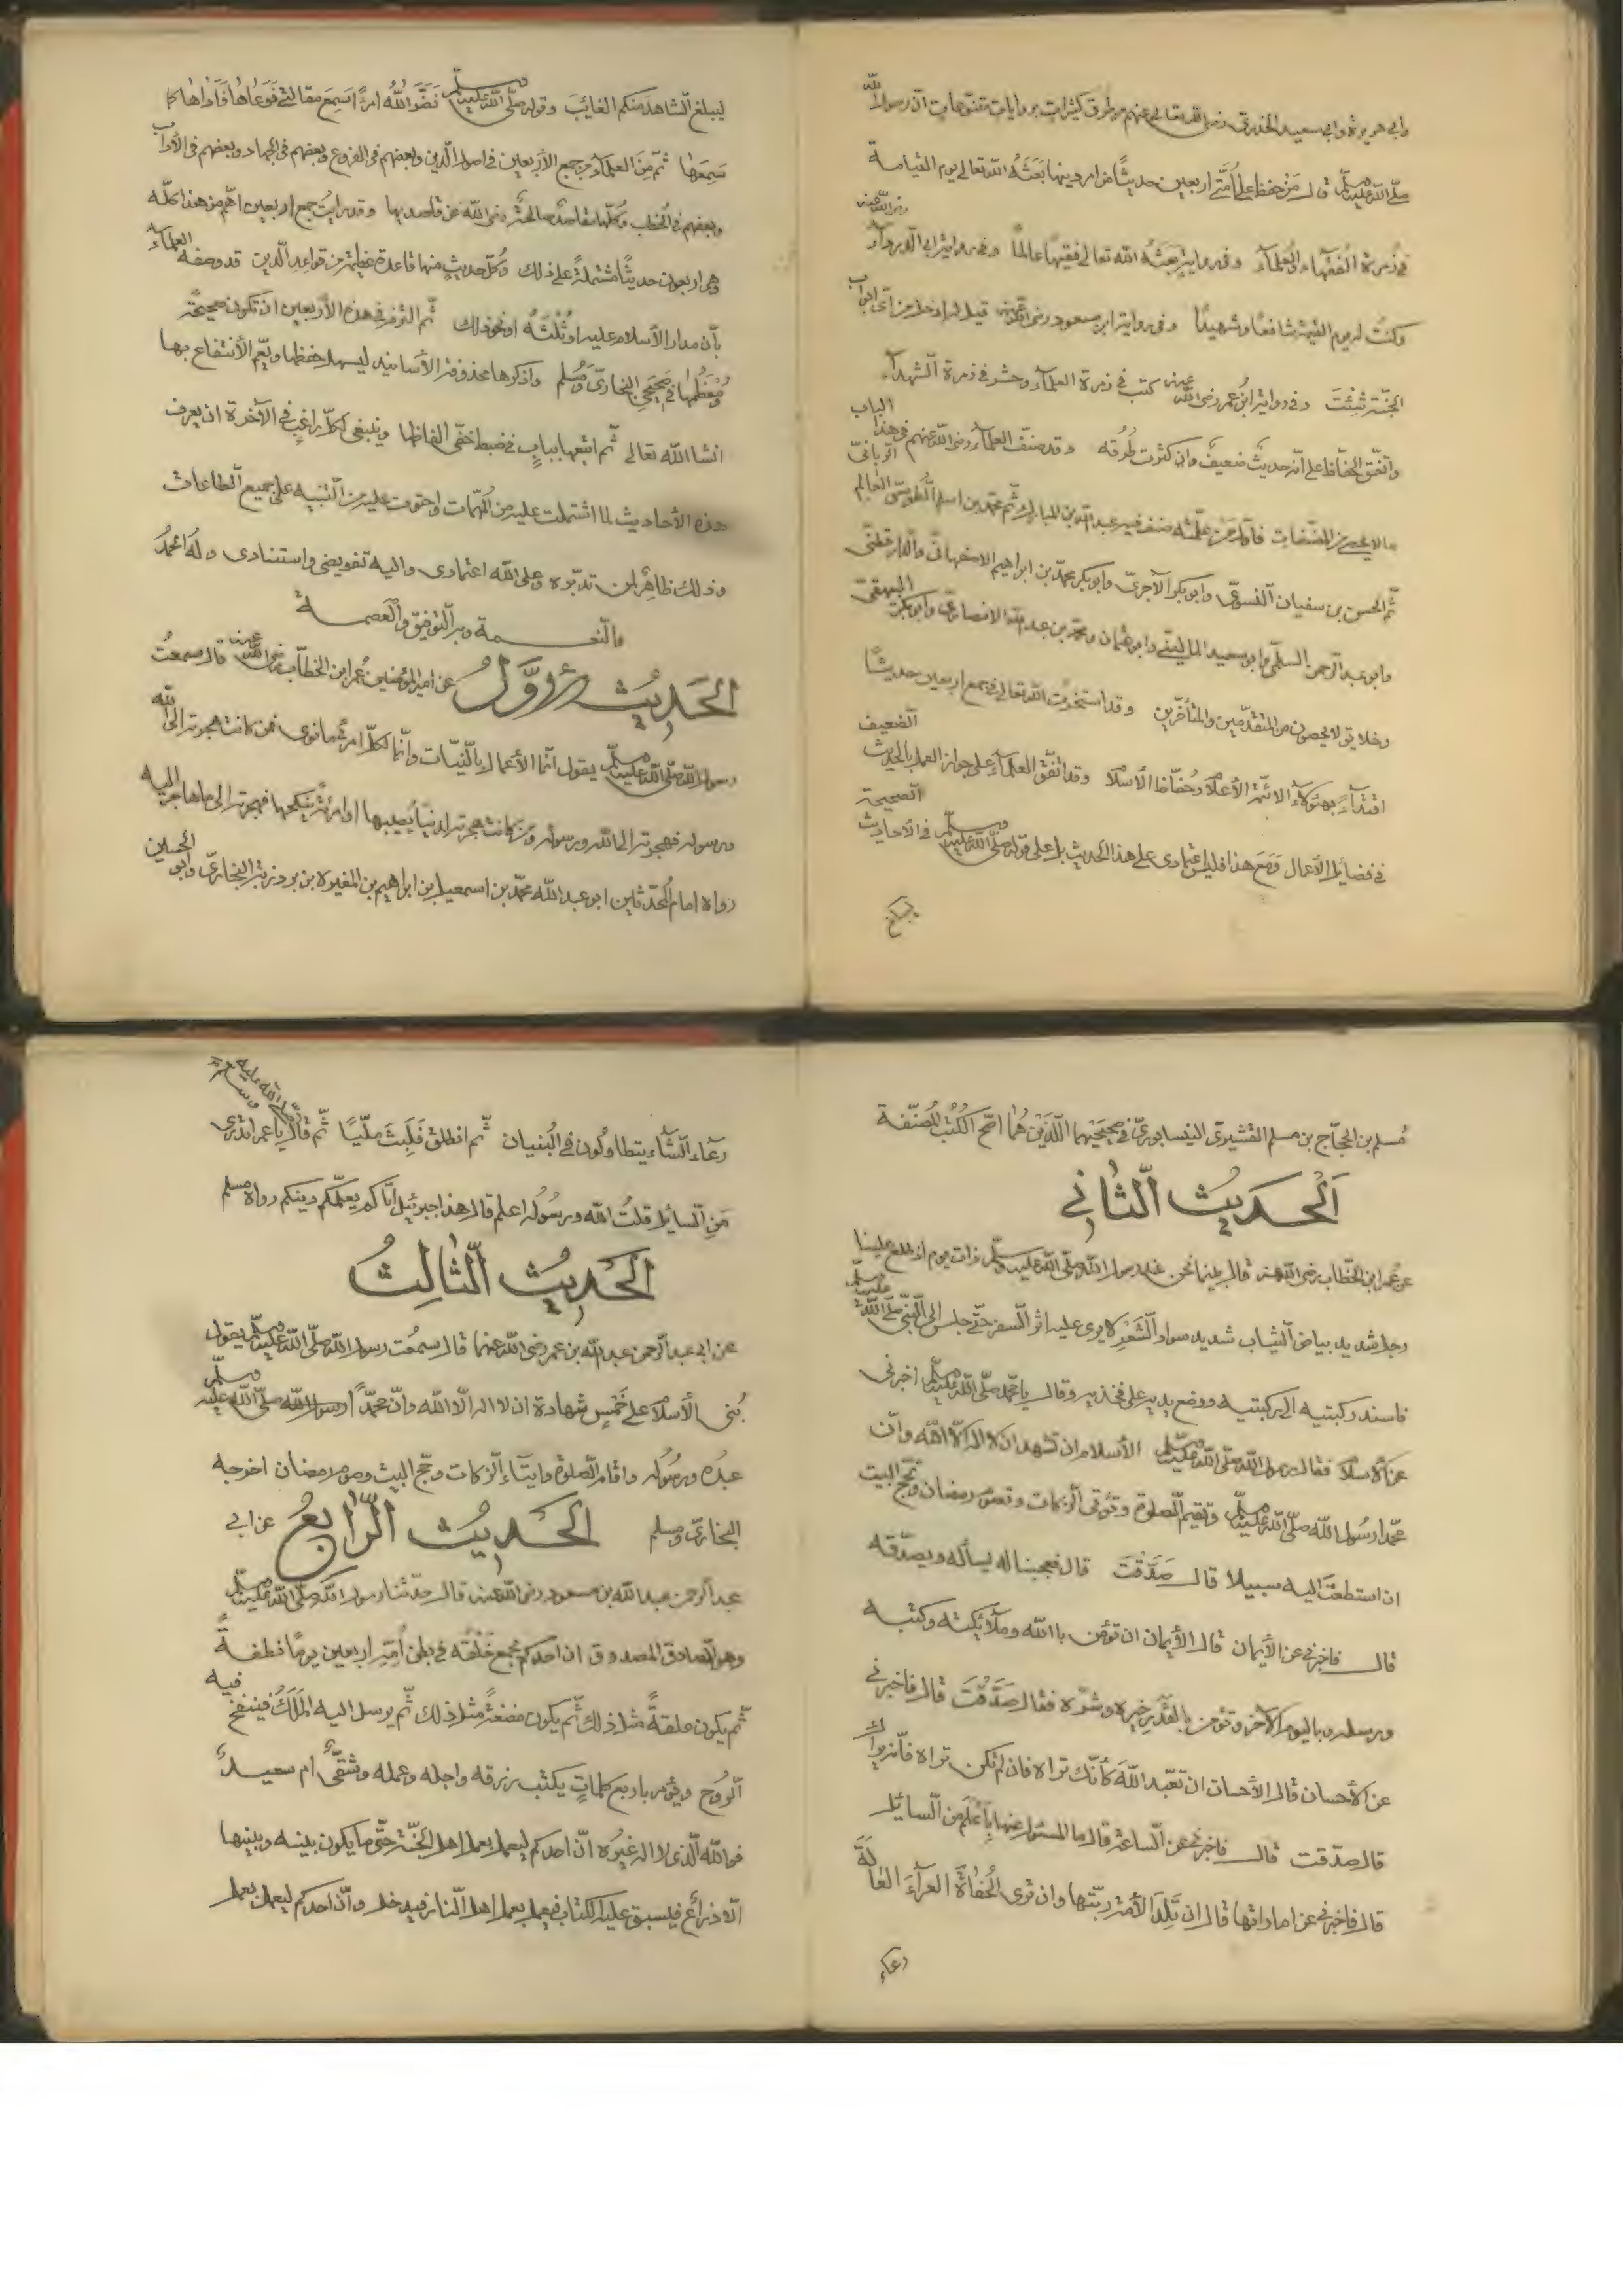 وابي هريرة وابي سعيد الخدري رضي الله تعالى عنهم من طرق كثيرات بروايات متنوّعات انّ رسول الله
صلّى الله عليه وسلّم قال مَنْ حفظ على اُمّتي اربعين حديثًا من امر دينها بَعَثَهُ الله تعالى يوم القيامة
في زمرة الفُقَهاء والعُلماء وفي رواية بَعَثَهُ الله تعالى فقيهًا عالمًا وفي رواية ابي الدرداء رضي الله عنه
وكنتُ له يوم القيمة شافعًا وشهيدًا وفي رواية ابن مسعود رضي الله عنه قيل له ادخل من اَيّ ابواب
الجنّة شِئْتَ وفي رواية ابن عمر رضي الله عنه كتب في زمرة العلماء وحشر في زمرة الشهداء
واتّفق الحفّاظ على انّه حديثٌ ضعيفٌ وان كثرت طُرُقه وقد صنّف العلماء رضي الله عنهم في هذا الباب
ما لا يحصى من المصنّفات فاوّل من علمته صنف فيه عبد الله بن المبارك ثم محمّد بن اسلم الطوسيّ العالم الربّانيّ
ثم الحسن بن سفيان النسويّ وابو بكر الآجريّ وابو بكر محمّد بن ابراهيم الاصفهانيّ والدارقطنيّ
وابو عبد الرحمن السلميّ وابو سعيد المالينيّ وابو عثمان ومحمّد بن عبد الله الانصاريّ وابو بكر البيهقيّ
وخلايق لا يحصون من المتقدّمين والمتأخّرين وقد استخرت الله تعالى في جمع اربعين حديثًا
اقتداءً بهؤلاء الائمّة الأعلام وحُفّاظ الأسلام وقد اتّفق العلماء على جواز العمل بالحديث الضعيف
في فضايل الأعمال وَمَعَ هذا فليس اعتمادى على هذا الحديث بل على قوله صلّى الله عليه وسلّم في الاحاديث الصحيحة
ليبلغ
ليبلغ الشاهد منكم الغائِبَ وقوله صلّى الله عليه وسلّم نَضَّرَ اللهُ امرًا سَمِعَ مقالتي فَوَعَاهَا فَاَدّاهَا كما
سَمِعَهَا ثمّ مِنَ العلماء من جمع الاَربعين في اصول الدّين وبعضهم في الفروع وبعضهم في الجهاد وبعضهم في الآداب
وبعضهم في الخطب وكُلّها مقاصد صالحة رضي الله عن قاصديها وقد رايتُ جمع اربعين اهمّ من هذا كلّه
وهي اربعون حديثًا مشتملة على ذلك وكلّ حديثٍ منها قاعدة عظيمة من قواعد الدّين قد وصفه العلماء
بأن مدار الأسلام عليه او ثُلثه او نحو ذلك ثمّ التزم في هذه الأربعين ان تكون صحيحة
ومُعَظمها في صَحيحَي البخاريّ ومُسلم واذكرها محذوفة الأسانيد ليسهل حفظها ويعمّ الأنتفاع بها
انشا الله تعالى ثمّ اتبعها ببابٍ في ضبط خفّي الفاظها وينبغي لكلّ راغبٍ في الآخرة ان يعرف
هذه الأحاديث لما اشتملت عليه من المُهمّات واحتوت عليه من التنبيه على جميع الطاعات
وذلك ظاهرٌ لمن تدبّره وعلى الله اعتمادى واليه تفويضى واستنادى وله الحمدُ
والنعمة وبه التوفيق والعصمة
الحَدِيثُ الأوَّلُ عن امير المؤمنين عُمر ابن الخطّاب رضي الله عنه قال سمعتُ
رسول الله صلّى الله عليه وسلّم يقول انّما الأعمال بالنيّات وانّما لكلّ امرئ ما نوى فمن كانت هجرته الى الله
ورسوله فهجرته الى الله ورسوله ومن كانت هجرته لدنيا يُصيبها او امرئة ينكحها فهجرته الى ما هاجر اليه
رواه امام المُحدّثين ابو عبد الله محمّد بن اسمعيل بن ابراهيم بن المغيرة بن بردزبة البخاريّ وابو الحسين
مُسلم بن الحجّاج بن مسلم القشيريّ النيسابوريّ في صحيحيهما اللّذَيْن هُمَا اصحّ الكُتُب المُصنّفة
اَلْحَدِيثُ الثَّانِي
عن عُمر ابن الخطّاب رضي الله عنه قال بينما نحن عند رسول الله صلّى الله عليه وسلّم ذات يوم اذ طلع علينا
رجل شديد بياض الثياب شديد سواد الشَعْرِ لا يرى عليه اثر السفر حتّى جلس الى النّبيّ صلّى الله عليه وسلّم
فاسند ركبتيه الى ركبتيه ووضع يديه على فخذيه وقال يا محمّد صلّى الله عليه وسلّم اخبرنى
عن الأسلام فقال رسول الله صلّى الله عليه وسلّم الأسلام ان تشهد ان لا اله الّا الله وانّ
محمّدا رسُول الله صلّى الله عليه وسلّم وتقيم الصلوة وتؤتى الزكات وتصوم رمضان وتحجّ البيت
ان استطعتَ اليه سبيلا قال صَدَّقْتَ قال فعجبنا له يسأله ويصدّقه
قال فاخبرنى عن الأيمان قال الأيمان ان تؤمن باالله وملائكته وكتبه
ورسله وباليوم الآخر وتؤمن بالقَدَرِ خيره وشرّه فقال صَدَّقْتَ قال فاخبرنى
عن الأحسان قال الأحسان ان تعْبد اللهَ كأنّك تراه فان لم تكن تراه فانّه يراك
قال صدّقت قال فاخبرنى عن الساعة قال ما المسئول عنها بِاَعْلَم من السايل
قال فاخبرنى عن اماراتها قال ان تَلِدَ الأمة ربّتها وان ترى الحُفاةَ العراَةَ العَالَةَ
رعاء
رعَاء الشاء يتطاولُون في البُنيان ثمّ انطلق فَلَبِثَ مليّا ثمّ قال يا عمر اتدرى
صلّى الله عليه وسلم
مَنِ السايل قلتُ الله ورسُوله اعلم قال هذا جبرئيل اتاكم يعلّمكم دينكم رواه مسلم
اَلحَدِيثُ الثّالِثُ
عن ابى عبد الرحمن عبد الله بن عمر رضي الله عنهما قال سمعْت رسول الله صلّى الله عليه وسلّم يقول
بُنى الأسلام على خَمْسٍ شهادة ان لا اله الّا الله وانّ محمّدًا رسول الله صلّى الله عليه وسلّم
عبدُه ورسُوله واقام الصلوة وايتاء الزكات وحجّ البيت وصوم رمضان اخرجه
البخاريّ ومسلم الحَدِيثُ الرّابعُ عن ابي
عبد الرحمن عبد الله بن مسعود رضي الله عنه قال حدّثنا رسول الله صلّى الله عليه وسلّم
وهو الصّادق المصدوق ان احدكم يجمع خَلْقه في بطن اُمّه اربعين يومًا نطفةً
ثمّ يكون علقةً مثل ذلك ثمّ يكون مضغةً مثل ذلك ثمّ يرسل اليه المَلَكُ فينفخ فيه
الرُوح ويؤمر باربع كلماتٍ يكتب رزقه واجله وعمله وشقىٌّ ام سعيدٌ
فوالله الّذى لا اله غيرُه انّ احدكم ليعمل بعمل اهل الجَنّة حتّى ما يكون بينه وبينها
الّا ذراعٌ فيسبق عليه الكتاب فيعمل بعمل اهل النار فيدخل وانّ احدكم ليعمل بعمل